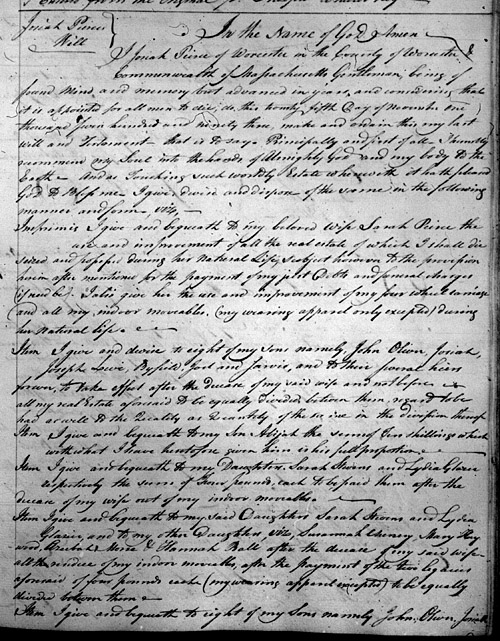 Josiah Pierce
Will
In the Name of God Amen
I Josiah Peirce of Worcester in the County of Worcester &
Commonwealth of Massachusetts Gentleman, being of
sound Mind, and memory but advanced in years, and considering that
it is appointed for all men to die, do, this twenty fifth Day of November one
thousand seven hundred and ninety three, make and ordain this my last
will and Testament that is to say Principally and first of all I humbly
recommend my Soul into the hands of Almighty God and my body to the
Earth And as Touching such worldly Estate wherewith it hath pleased
God to bless me I give, devise and dispose of the same in the following
manner and form, viz,
Imprimis I give and bequeath to my beloved wife Sarah Peirce the
use and improvement of all the real estate of which I shall die
seized and possessed during her Natural Life, subject however to the provision
herein after mentioned for the payment of my just Debts and funeral charge
(if need be) I also give her the use and improvement of my four wheel carriage
and all my indoor moveables, (my wearing apparel only excepted) during
her Natural life
Item I give and devise to eight of my Sons namely, John, Oliver, Josiah,
Joseph, Levi, Byfield, Joel and Jarvis, and to their several heirs
forever, to take effect after the decease of my said wife and not before
all my real Estate aforesaid to be equally divided between them, regard to be
had as well to the Quality as Quantity of the in the division thereof
Item I give and bequeath to my Son Abijah the sum of Ten shillings which
with what I have heretofore given him is his full proportion
Item I give and bequeath to my Daughters, Sarah Stevens and Lydia Glazier
respectively the sum of four pounds, each to be paid them after the
decease of my wife out of my indoor moveables
Item I give and bequeath to my said Daughters Sarah Stevens and Lydia
Glazier, and to my other Daughters, viz, Susannah Chenery, Mary Hey
wood, & Hannah Ball after the decease of my said wife
all the residue of my indoor moveables, after the payment of the two legacies
aforesaid of four pounds each (my wearing apparel excepted) to be equally
divided between them
Item I give and bequeath to eight of my Sons namely, John, Oliver, Josiah